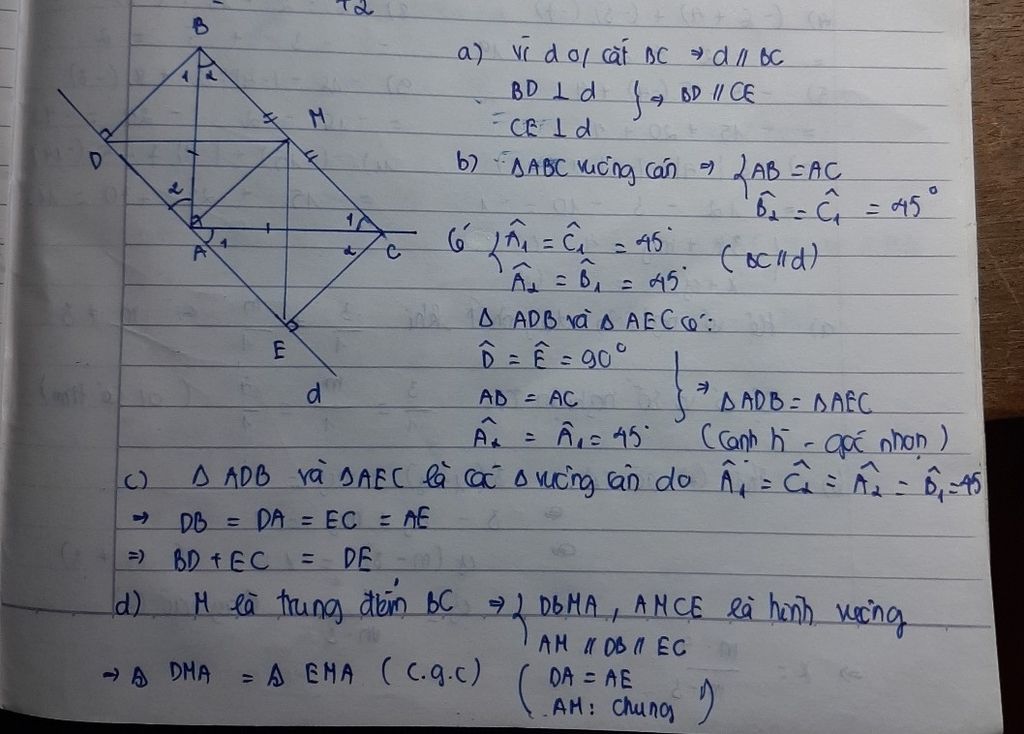 +2
B
1 2
M
D
2
A
1
1
2
C
E
d
a) Vì d ko/ cắt BC → d // BC
BD ⊥ d } → BD // CE
CE ⊥ d
b) ΔABC vuông cân ⇒ { AB = AC
B̂₂ = Ĉ₁ = 45°
Có { Â₁ = Ĉ₁ = 45° (BC // d)
Â₂ = B̂₁ = 45°
Δ ADB và Δ AEC có:
D̂ = Ê = 90°
AB = AC } ⇒ ΔADB = ΔAEC
Â₂ = Â₁ = 45° (cạnh h - góc nhọn)
c) Δ ADB và ΔAEC là các Δ vuông cân do Â₁ = Ĉ₂ = Â₂ = B̂₁ = 45
⇒ DB = DA = EC = AE
⇒ BD + EC = DE
d) M là trung điểm BC ⇒ { DBMA, AMCE là hình vuông
AM // DB // EC
→ Δ DMA = Δ EMA (c.g.c) ( DA = AE
AM: chung )